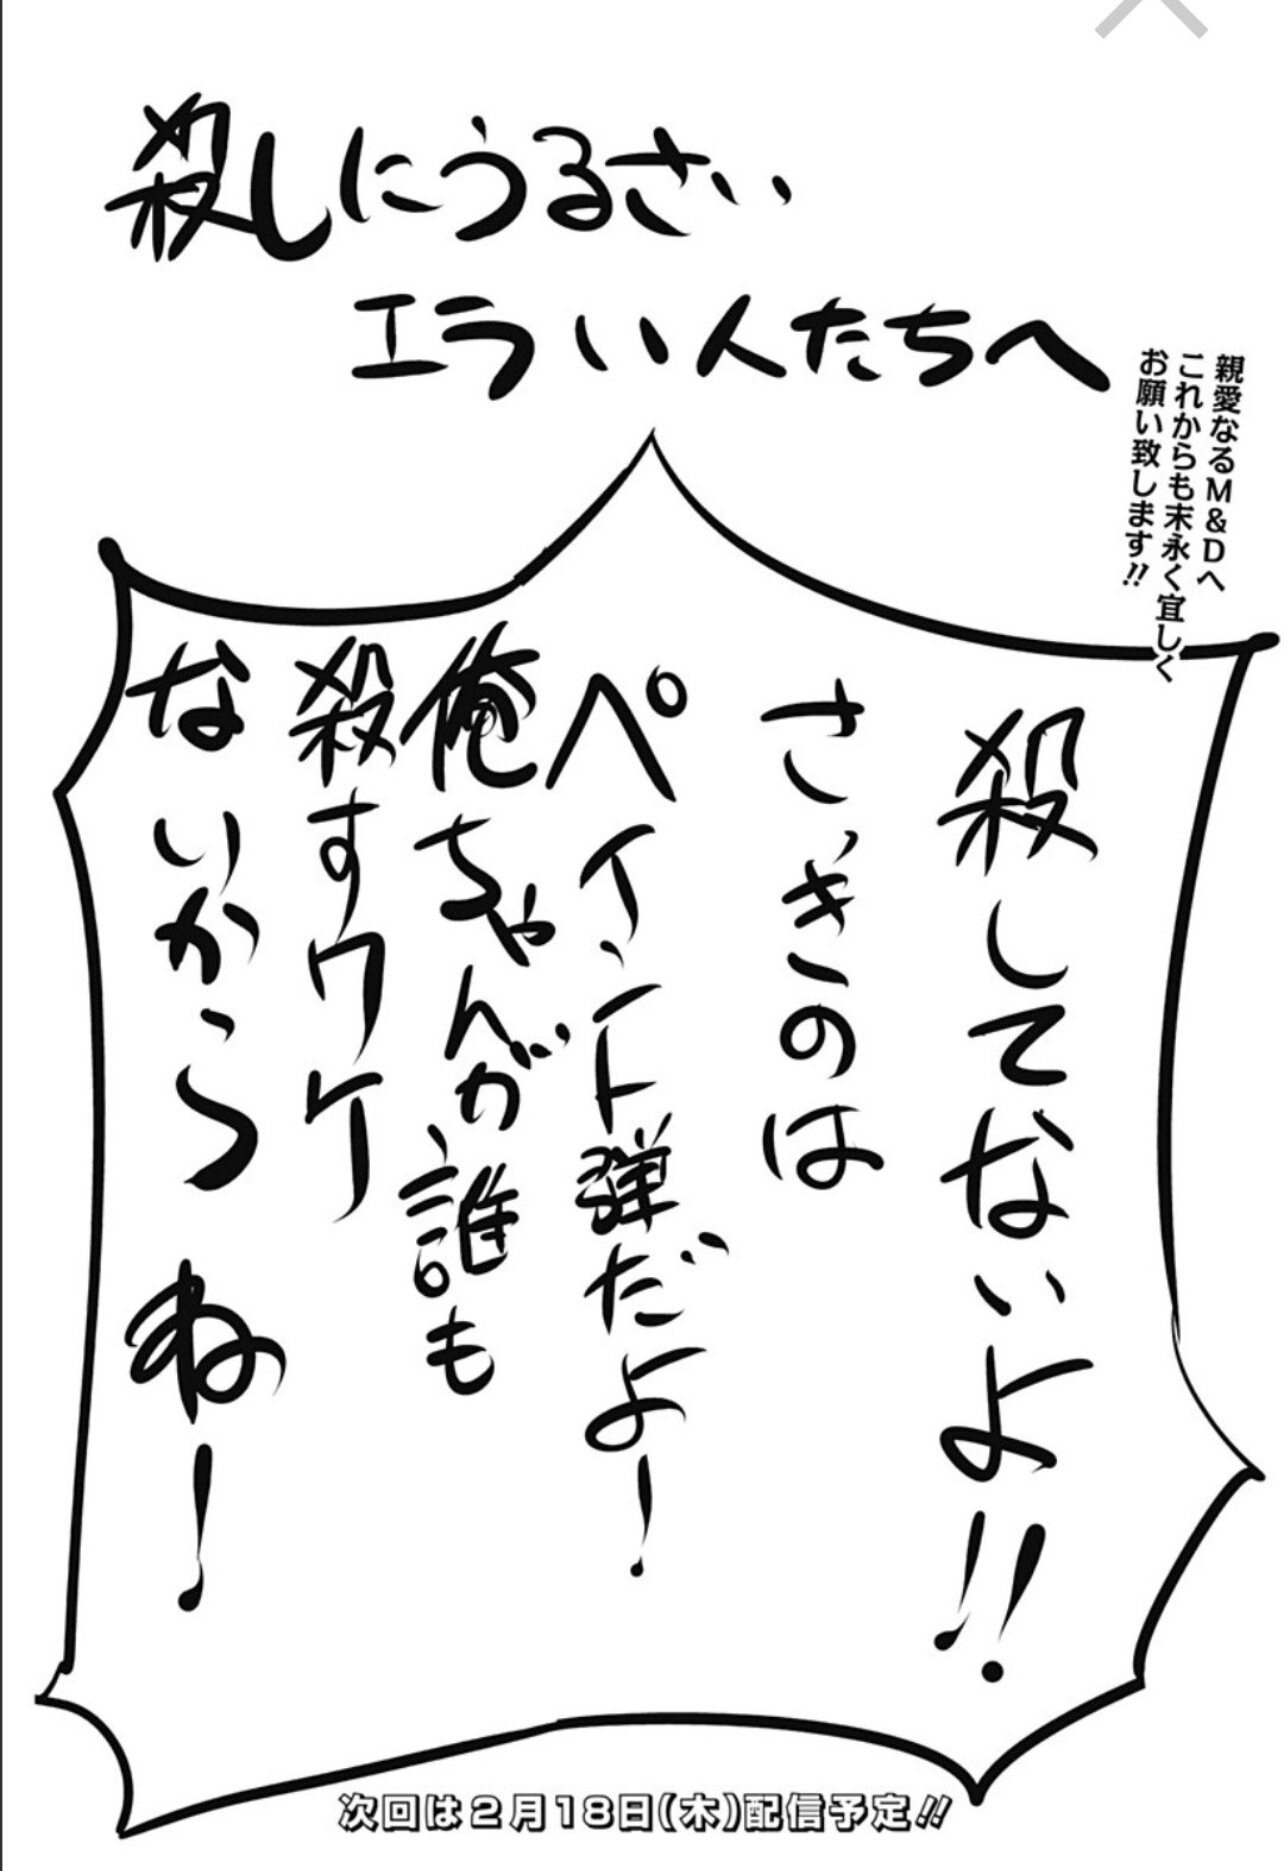 殺しにうるさい
エライ人たちへ
親愛なるM&Dへ
これからも末永く宜しく
お願い致します!!
殺してないよ!!
さっきのは
ペイント弾だよ!
俺ちゃんが誰も
殺すワケ
ないからね!
次回は2月18日(木)配信予定!!